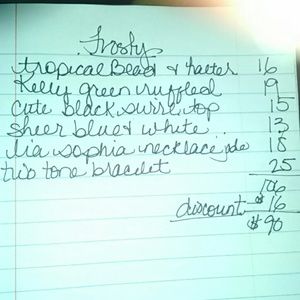 Frosty
tropical Bead & halter 16
Kelly green ruffled 19
Cute black swirl top 15
Sheer blue & white .. 13
lia sophia necklace 18
two tone bracelet 25
106
discount $16
$90